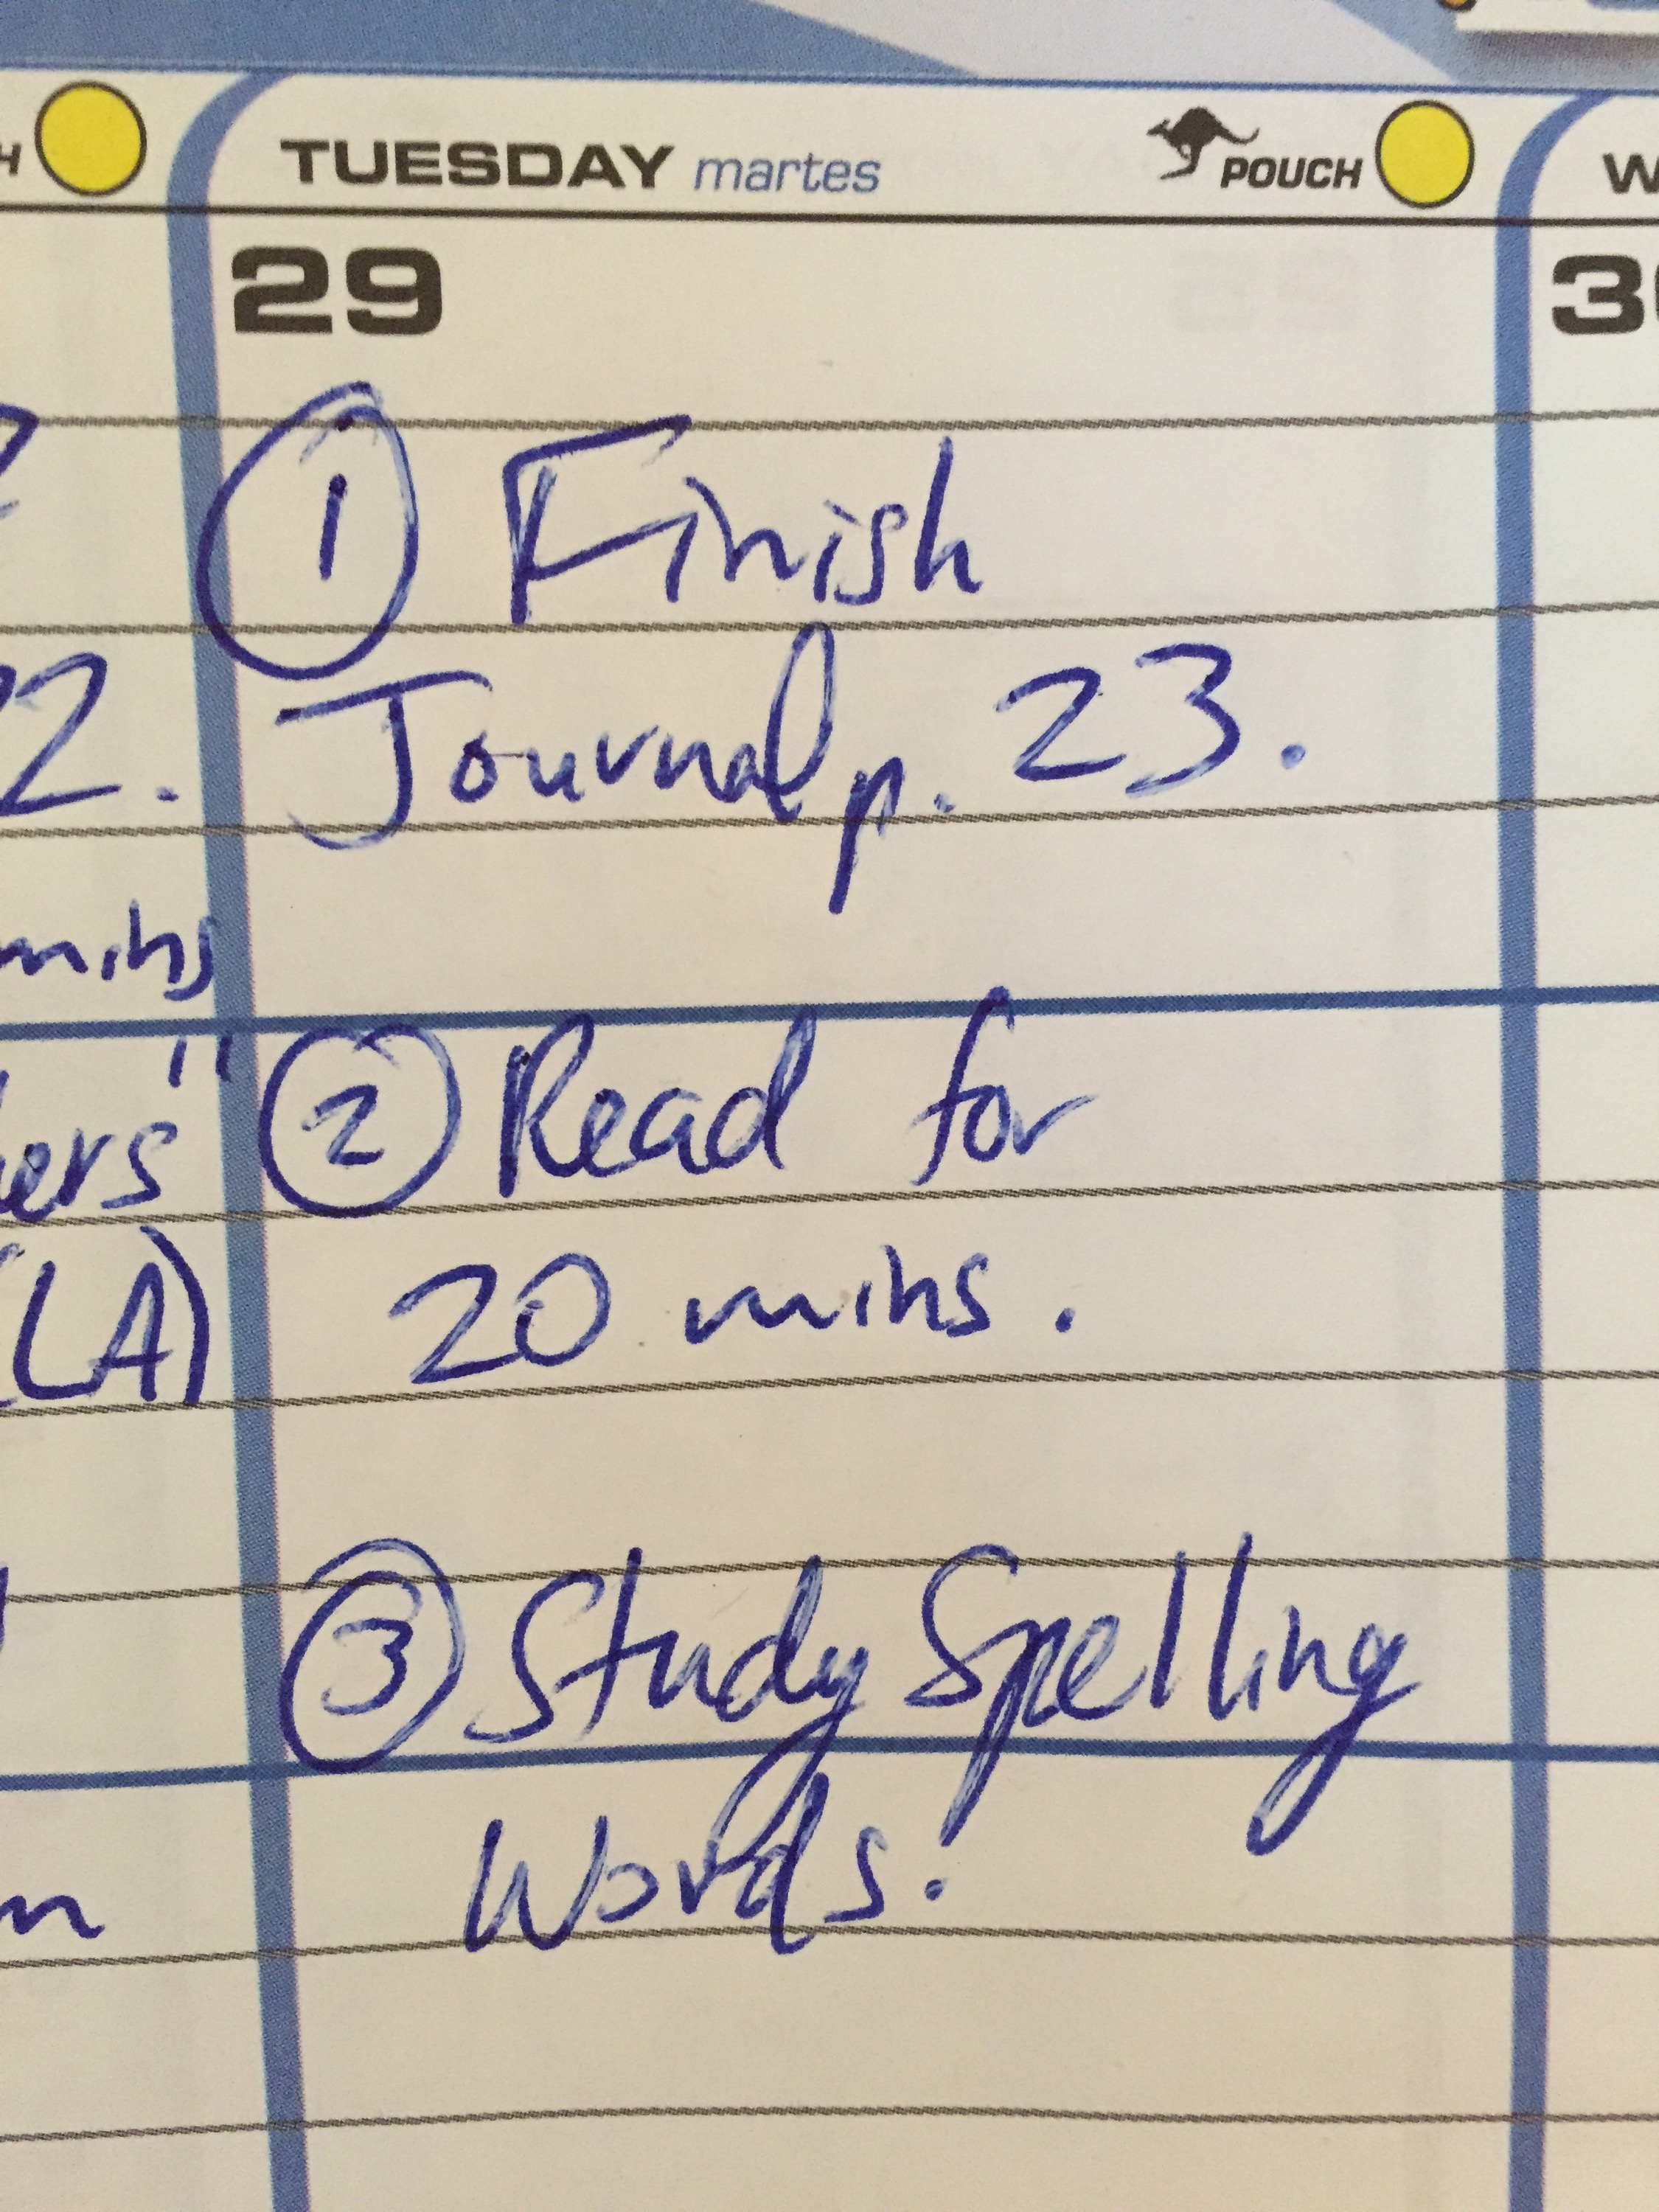 TUESDAY martes POUCH
29
① Finish
Journal p. 23.
② Read for
20 mins.
③ Study Spelling
Words.
22.
mins
(LA)